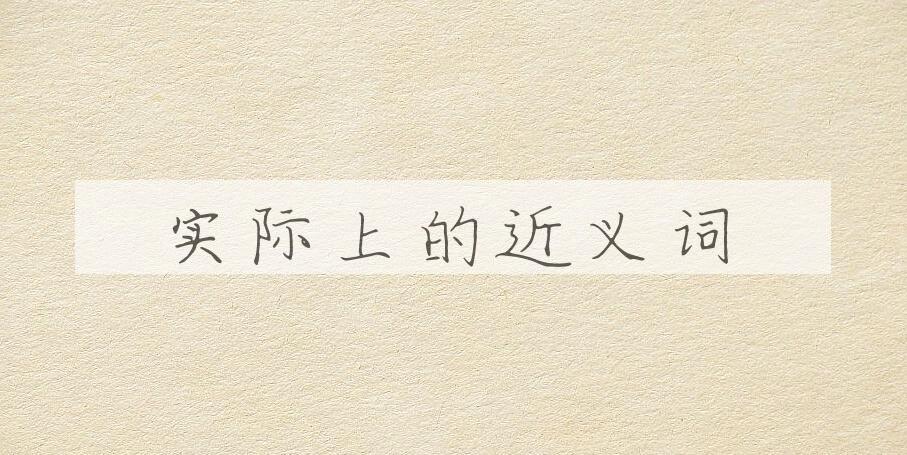 实际上的近义词